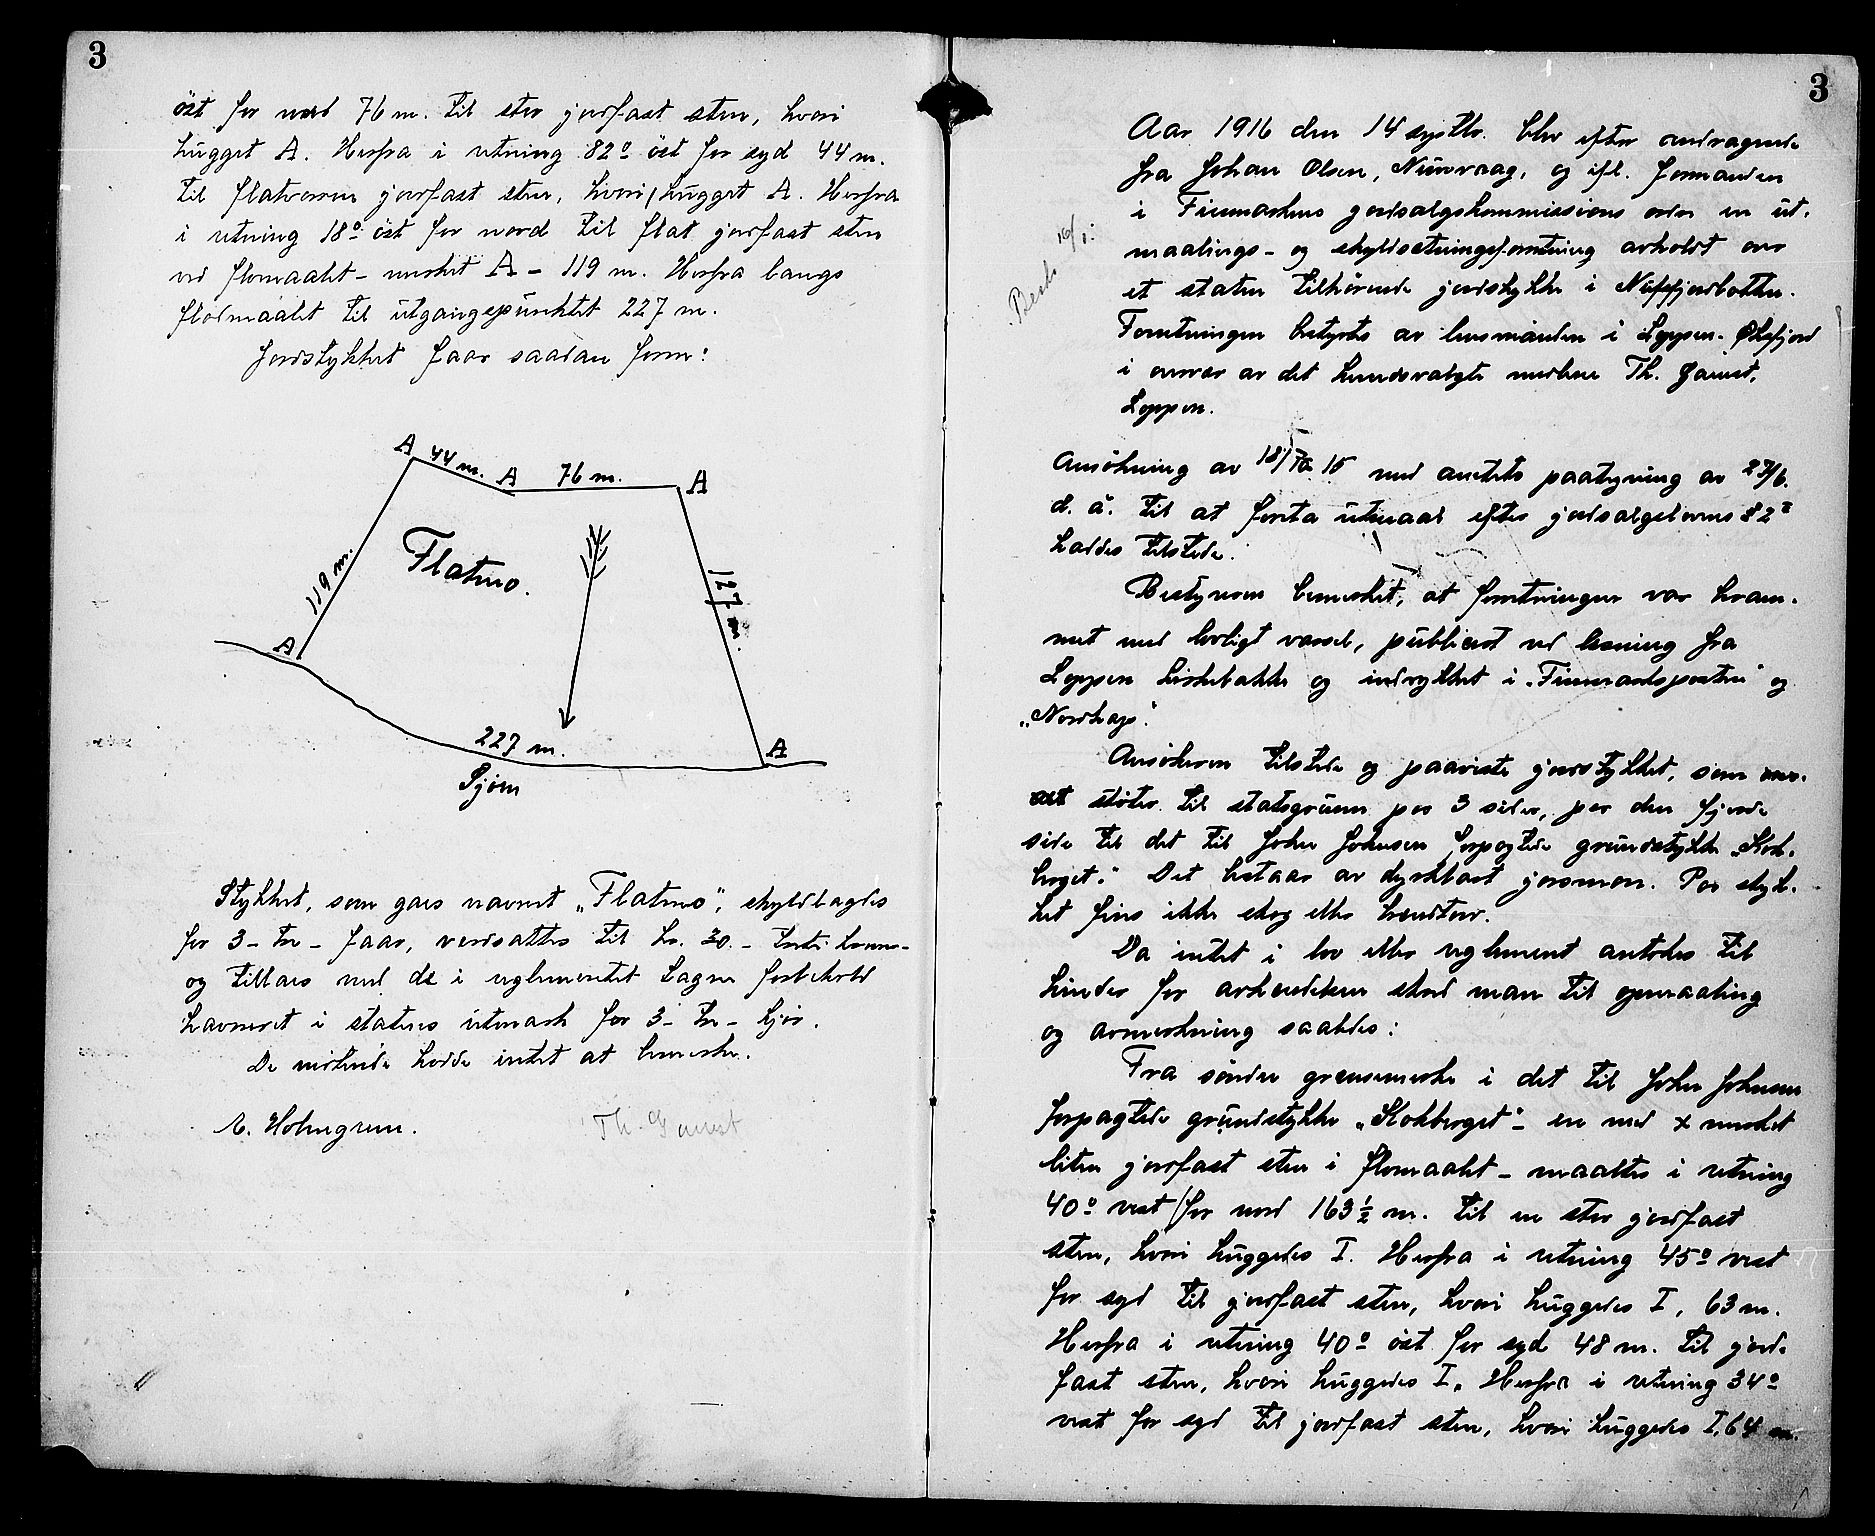 3
öst for nord 76 m. til stor jordfast sten, hvori
hugget A. Herfra i retning 82° öst for syd 44 m.
til flatvoren jordfast sten, hvori hugget A. Herfra
i retning 18° öst for nord til flat jordfast sten
ved flomaalet - merket A - 119 m. Herfra langs
flodmaalet til utgangspunktet 227 m.
Jordstykket faar saadan form:
A 44 m. A 76 m. A
Flatmo.
119 m.
127 m.
A
227 m.
A
Sjøen
Stykket, som gaes navnet „Flatmo", skyldlagdes
for 3 - tre - faar, verdsattes til kr. 30. -
og tillaes med de i reglementet tagne forbehold
havneret i statens utmark for 3 - tre - kjør.
De mötende hadde intet at bemerke.
A. Holmgren.
Th. Gamst
3
Aar 1916 den 14 septbr. blev efter andragende
fra Johan Olsen, Nuvsvaag, og ifl. formanden
i Finmarkens jordsalgskommissions ordre en ut-
maalings- og skyldsetningsforretning avholdt over
et staten tilhørende jordstykke i Nufsfjordbotten.
Forretningen bestyrtes av lensmanden i Loppen-Øksfjord
i nærvær av det kundsvalgte medlem Th. Gamst,
Loppen.
Ansökning av 18/10 15 med amtets paategning av 27/6
d. å. til at foreta utmaal efter jordsalgslovens § 2
haddes tilstede.
Bestyreren bemerket, at forretningen var bram-
met med lovligt varsel, publicert ved læsning fra
Loppen kirkebakke og indrykket i „Finmarksposten" og
„Nordkap".
Ansökeren tilstede og paaviste jordstykket, som
støter til statsgrunn paa 3 sider, paa den fjerde
side til det til Johan Johnsen forpagtede grundstykke „Stok-
berget". Det bestaar av dyrkbart jordsmon. Paa styk-
ket fins ikke skog eller brendtorv.
Da intet i lov eller reglement antokes til
hinder for avhendelsen skred man til opmaaling
og avmerkning saaledes:
Fra söndre grensemerke i det til Johan Johnsen
forpagtede grundstykke „Stokberget" - en med x merket
liten jordfast sten i flomaalet - maaltes i retning
40° vest for nord 163 ½ m. til en stor jordfast
sten, hvori huggedes I. Herfra i retning 45° vest
for syd til jordfast sten, hvori huggedes I, 63 m.
Herfra i retning 40° öst for syd 48 m. til jord-
fast sten, hvori huggedes I. Herfra i retning 34°
vest for syd til jordfast sten, hvori huggedes I, 64 m.